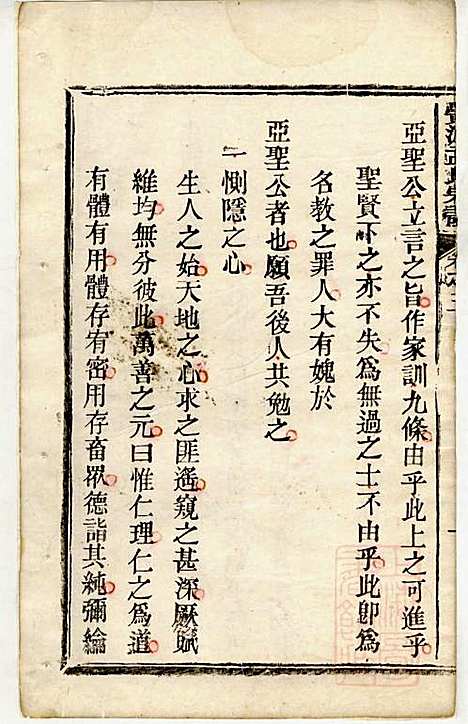 亞聖公立言之旨作家訓九條由乎此上之可進乎
聖賢下之亦不失為無過之士不由乎此卽為
名教之罪人大有媿於
亞聖公者也願吾後人共勉之
一惻隱之心
生人之始天地之心求之匪遙窺之甚深厥賦
維均無分彼此萬善之元曰惟仁理仁之為道
有體有用體存宥密用存畜眾德詣其純彌綸